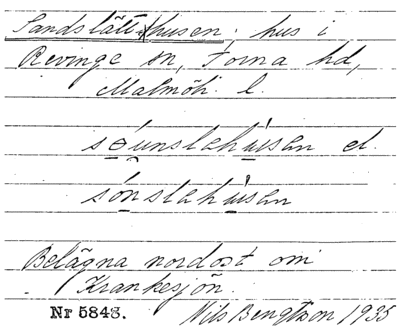 Sandslätt-husen: hus i
Revinge sn, Torna hd,
Malmöh. l.
søunslahusan el.
sónslahusan
Belägna nordost om
Krankesjön.
Nr 5848. Nils Bengtsson 1935